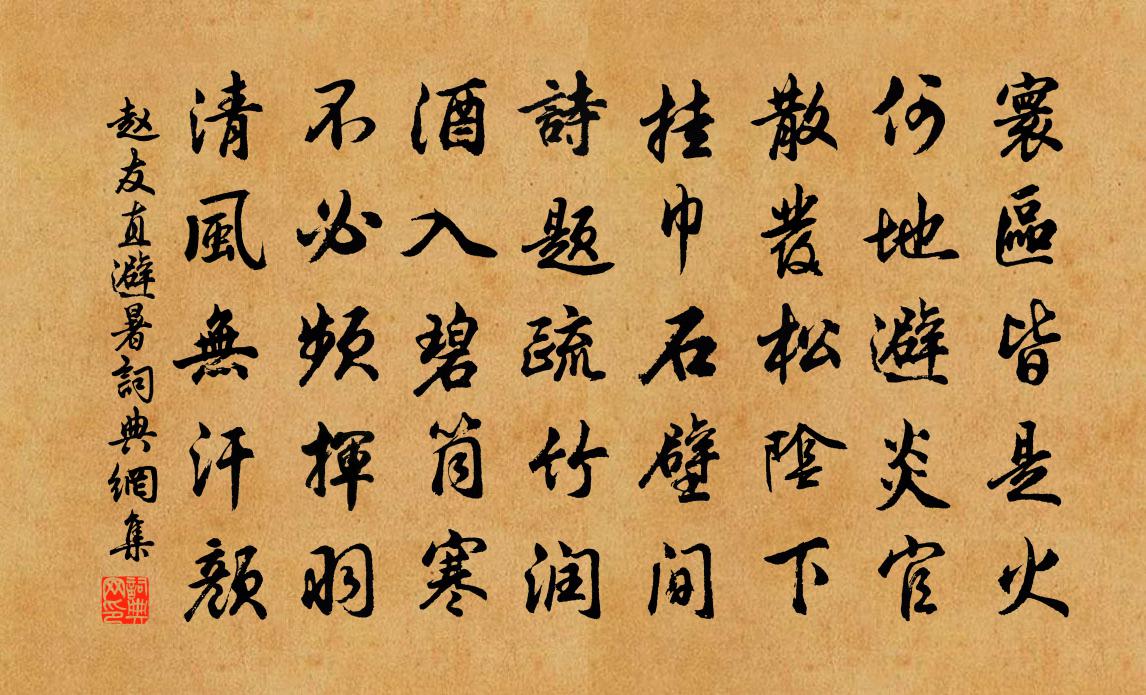 寰區皆是火
何地避炎官
散叢松陰下
挂巾石壁間
詩題疏竹润
酒入碧筒寒
不必頻揮羽
清風無汗顔
赵友直避暑詞典網集
詞典网印